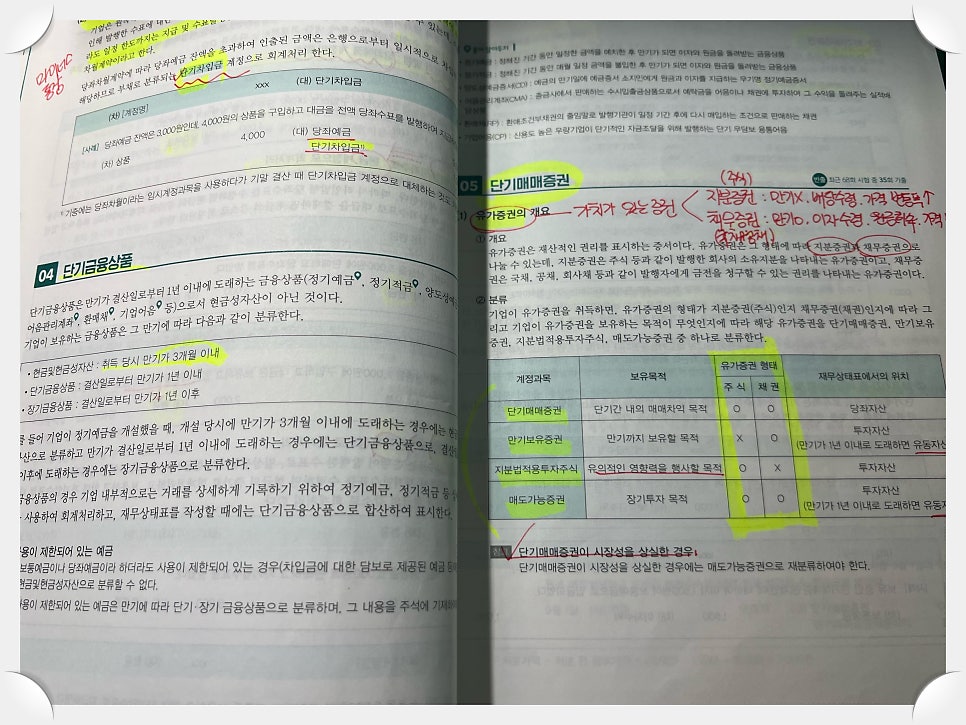 기업은 원
인해 발행한 수표에 대
라도 일정 한도까지는 지급 및 수표를
차월계약이라고 한다.
당좌차월계약에 따라 당좌예금 잔액을 초과하여 인출된 금액은 은행으로부터 일시적으로 차입
해당하므로 부채로 분류되는 단기차입금 계정으로 회계처리 한다.
마이너스
통장
(차) [계정명] xxx (대) 단기차입금
[사례] 당좌예금 잔액은 3,000원인데, 4,000원의 상품을 구입하고 대금을 전액 당좌수표를 발행하여 지급
(차) 상품 4,000 (대) 당좌예금
단기차입금¹⁾
¹⁾ 기중에는 당좌차월이라는 임시계정과목을 사용하다가 기말 결산 때 단기차입금 계정으로 대체하는 것
04 단기금융상품
단기금융상품은 만기가 결산일로부터 1년 이내에 도래하는 금융상품(정기예금, 정기적금, 양도성예
어음관리계좌, 환매채, 기업어음 등)으로서 현금성자산이 아닌 것이다.
기업이 보유하는 금융상품은 그 만기에 따라 다음과 같이 분류한다.
• 현금및현금성자산 : 취득 당시 만기가 3개월 이내
• 단기금융상품 : 결산일로부터 만기가 1년 이내
• 장기금융상품 : 결산일로부터 만기가 1년 이후
를 들어 기업이 정기예금을 개설했을 때, 개설 당시에 만기가 3개월 이내에 도래하는 경우에는 현
산으로 분류하고 만기가 결산일로부터 1년 이내에 도래하는 경우에는 단기금융상품으로, 결산
이후에 도래하는 경우에는 장기금융상품으로 분류한다.
금융상품의 경우 기업 내부적으로는 거래를 상세하게 기록하기 위하여 정기예금, 정기적금 등
사용하여 회계처리하고, 재무상태표를 작성할 때에는 단기금융상품으로 합산하여 표시한다.
사용이 제한되어 있는 예금
보통예금이나 당좌예금이라 하더라도 사용이 제한되어 있는 경우(차입금에 대한 담보로 제공된 예금 등
현금및현금성자산으로 분류할 수 없다.
사용이 제한되어 있는 예금은 만기에 따라 단기·장기 금융상품으로 분류하며, 그 내용을 주석에 기재
용어알아두기
• 정기예금 : 정해진 기간 동안 일정한 금액을 예치한 후 만기가 되면 이자와 원금을 돌려받는 금융상품
• 정기적금 : 정해진 기간 동안 매월 일정 금액을 불입한 후 만기가 되면 이자와 원금을 돌려받는 금융상품
• 양도성예금증서(CD) : 예금의 만기일에 예금증서 소지인에게 원금과 이자를 지급하는 무기명 정기예금증서
• 어음관리계좌(CMA) : 종금사에서 판매하는 수시입출금상품으로서 예탁금을 어음이나 채권에 투자하여 그 수익을 돌려주는 실적배
당상품
• 환매채(RP) : 환매조건부채권의 줄임말로 발행기관이 일정 기간 후에 다시 매입하는 조건으로 판매하는 채권
• 기업어음(CP) : 신용도 높은 우량기업이 단기적인 자금조달을 위해 발행하는 단기 무담보 융통어음
05 단기매매증권
빈출 최근 68회 시험 중 35회 기출
(1) 유가증권의 개요
가치가 있는 증권
(주식)
지분증권 : 만기X, 배당수령, 가격 변동폭↑
채무증권 : 만기O, 이자수령, 원금회수, 가격
① 개요
유가증권은 재산적인 권리를 표시하는 증서이다. 유가증권은 그 형태에 따라 지분증권과 채무증권으로
나눌 수 있는데, 지분증권은 주식 등과 같이 발행한 회사의 소유지분을 나타내는 유가증권이고, 채무증
권은 국채, 공채, 회사채 등과 같이 발행자에게 금전을 청구할 수 있는 권리를 나타내는 유가증권이다.
② 분류
기업이 유가증권을 취득하면, 유가증권의 형태가 지분증권(주식)인지 채무증권(채권)인지에 따라 그
리고 기업이 유가증권을 보유하는 목적이 무엇인지에 따라 해당 유가증권을 단기매매증권, 만기보유
증권, 지분법적용투자주식, 매도가능증권 중 하나로 분류한다.
계정과목 보유목적 유가증권 형태 재무상태표에서의 위치
주 식 채 권
단기매매증권 단기간 내의 매매차익 목적 O O 당좌자산
만기보유증권 만기까지 보유할 목적 X O 투자자산
(만기가 1년 이내로 도래하면 유동자산
지분법적용투자주식 유의적인 영향력을 행사할 목적 O X 투자자산
매도가능증권 장기투자 목적 O O 투자자산
(만기가 1년 이내로 도래하면 유동자
단기매매증권이 시장성을 상실한 경우
단기매매증권이 시장성을 상실한 경우에는 매도가능증권으로 재분류하여야 한다.